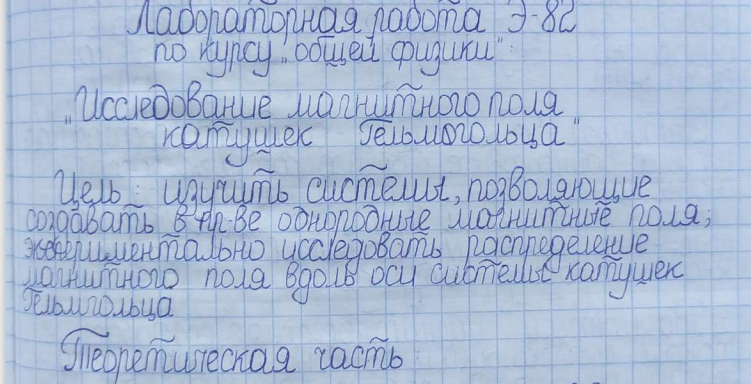 Лабораторная работа Э-82
по курсу „общей физики"
„Исследование магнитного поля
катушек Гельмогольца"
Цель: изучить системы, позволяющие
создавать в пр-ве однородные магнитные поля;
экспериментально исследовать распределение
магнитного поля вдоль оси системы катушек
Гельмгольца
Теоретическая часть: